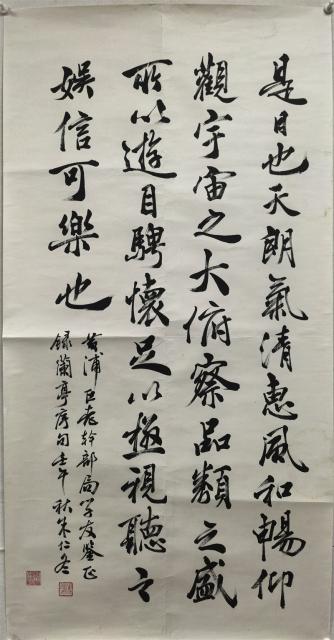 是日也天朗氣清惠風和暢仰
觀宇宙之大俯察品類之盛
所以遊目騁懷足以極視聽之
娛信可樂也
黃浦區老幹部局學友鑒正
錄蘭亭序句壬午秋朱仁冬